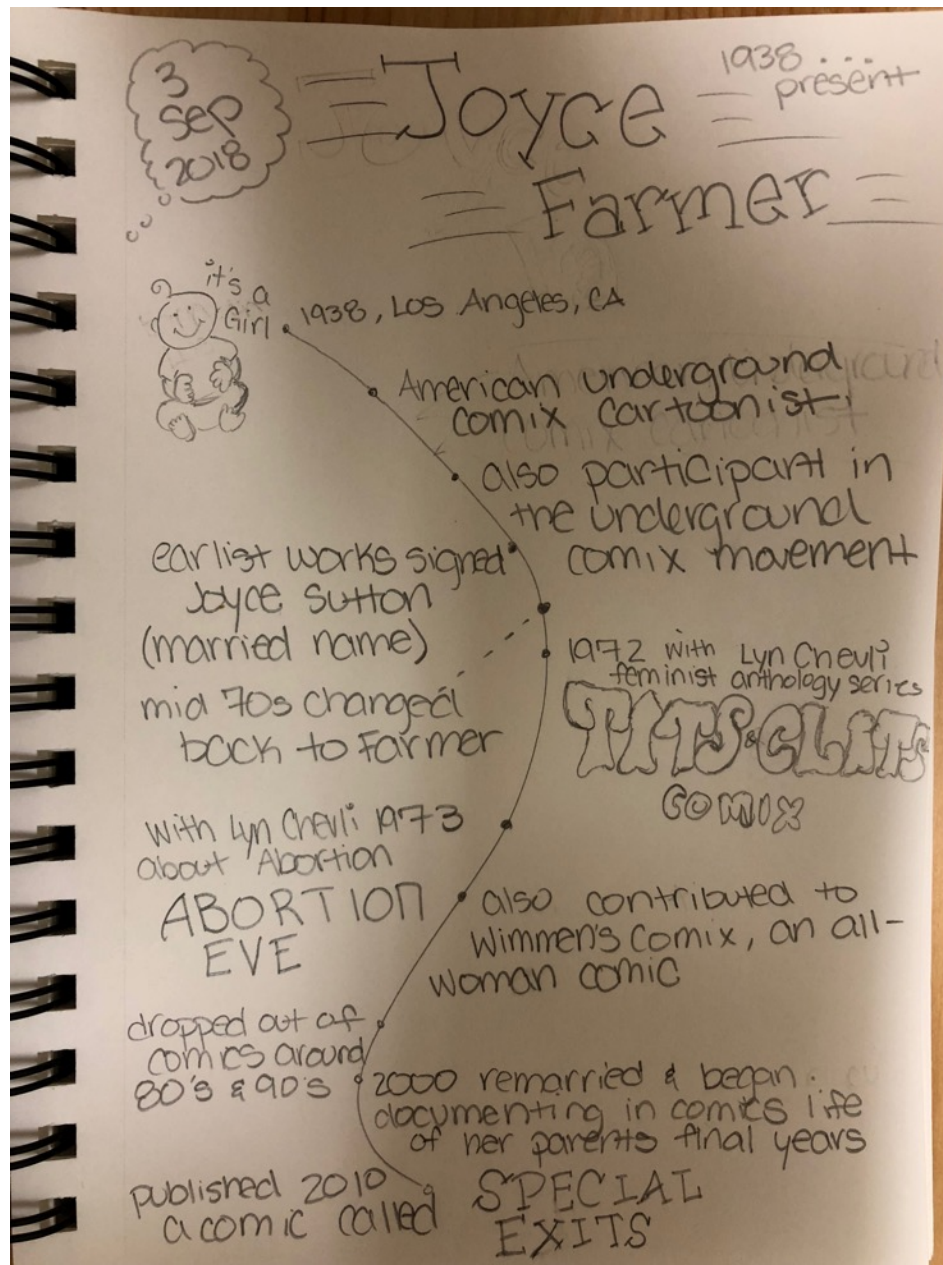 3
Sep
2018
Joyce
1938...
present
Farmer
it's a
Girl
1938, Los Angeles, CA
American underground
comix cartoonist
also participant in
the underground
comix movement
earlist works signed
Joyce Sutton
(married name)
mid 70s changed
back to Farmer
1972 with Lyn Chevli
feminist anthology series
TITS & CLITS
COMIX
with Lyn Chevli 1973
about Abortion
ABORTION
EVE
also contributed to
Wimmen's Comix, an all-
woman comic
dropped out of
comics around
80's & 90's
2000 remarried & began
documenting in comics life
of her parents final years
published 2010
a comic called
SPECIAL
EXITS